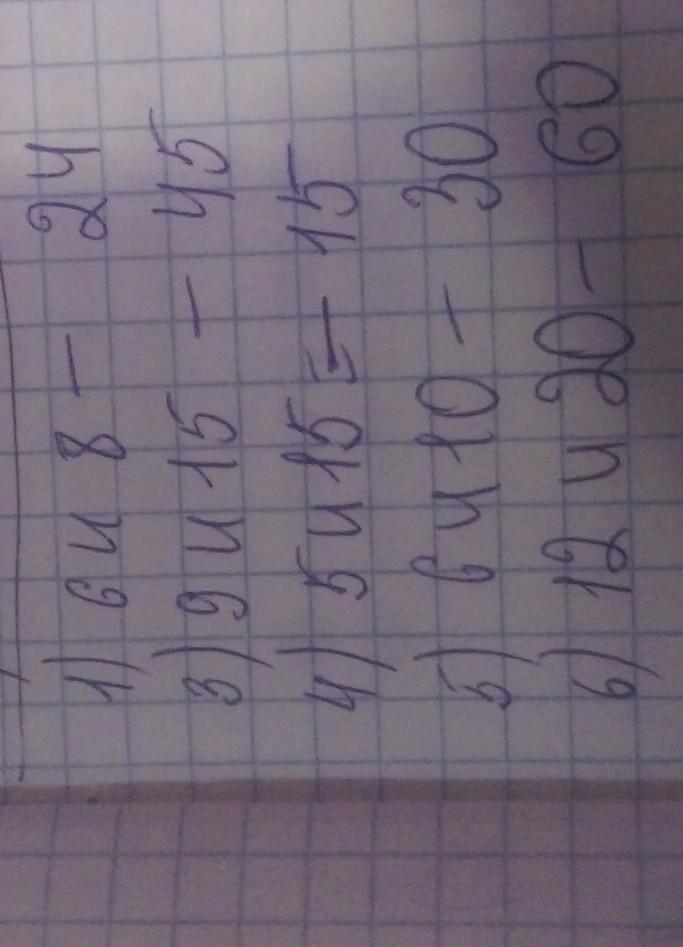 1) 6 и 8 - 24
3) 9 и 15 - 45
4) 5 и 15 = - 15
5) 6 и 10 - 30
6) 12 и 20 - 60